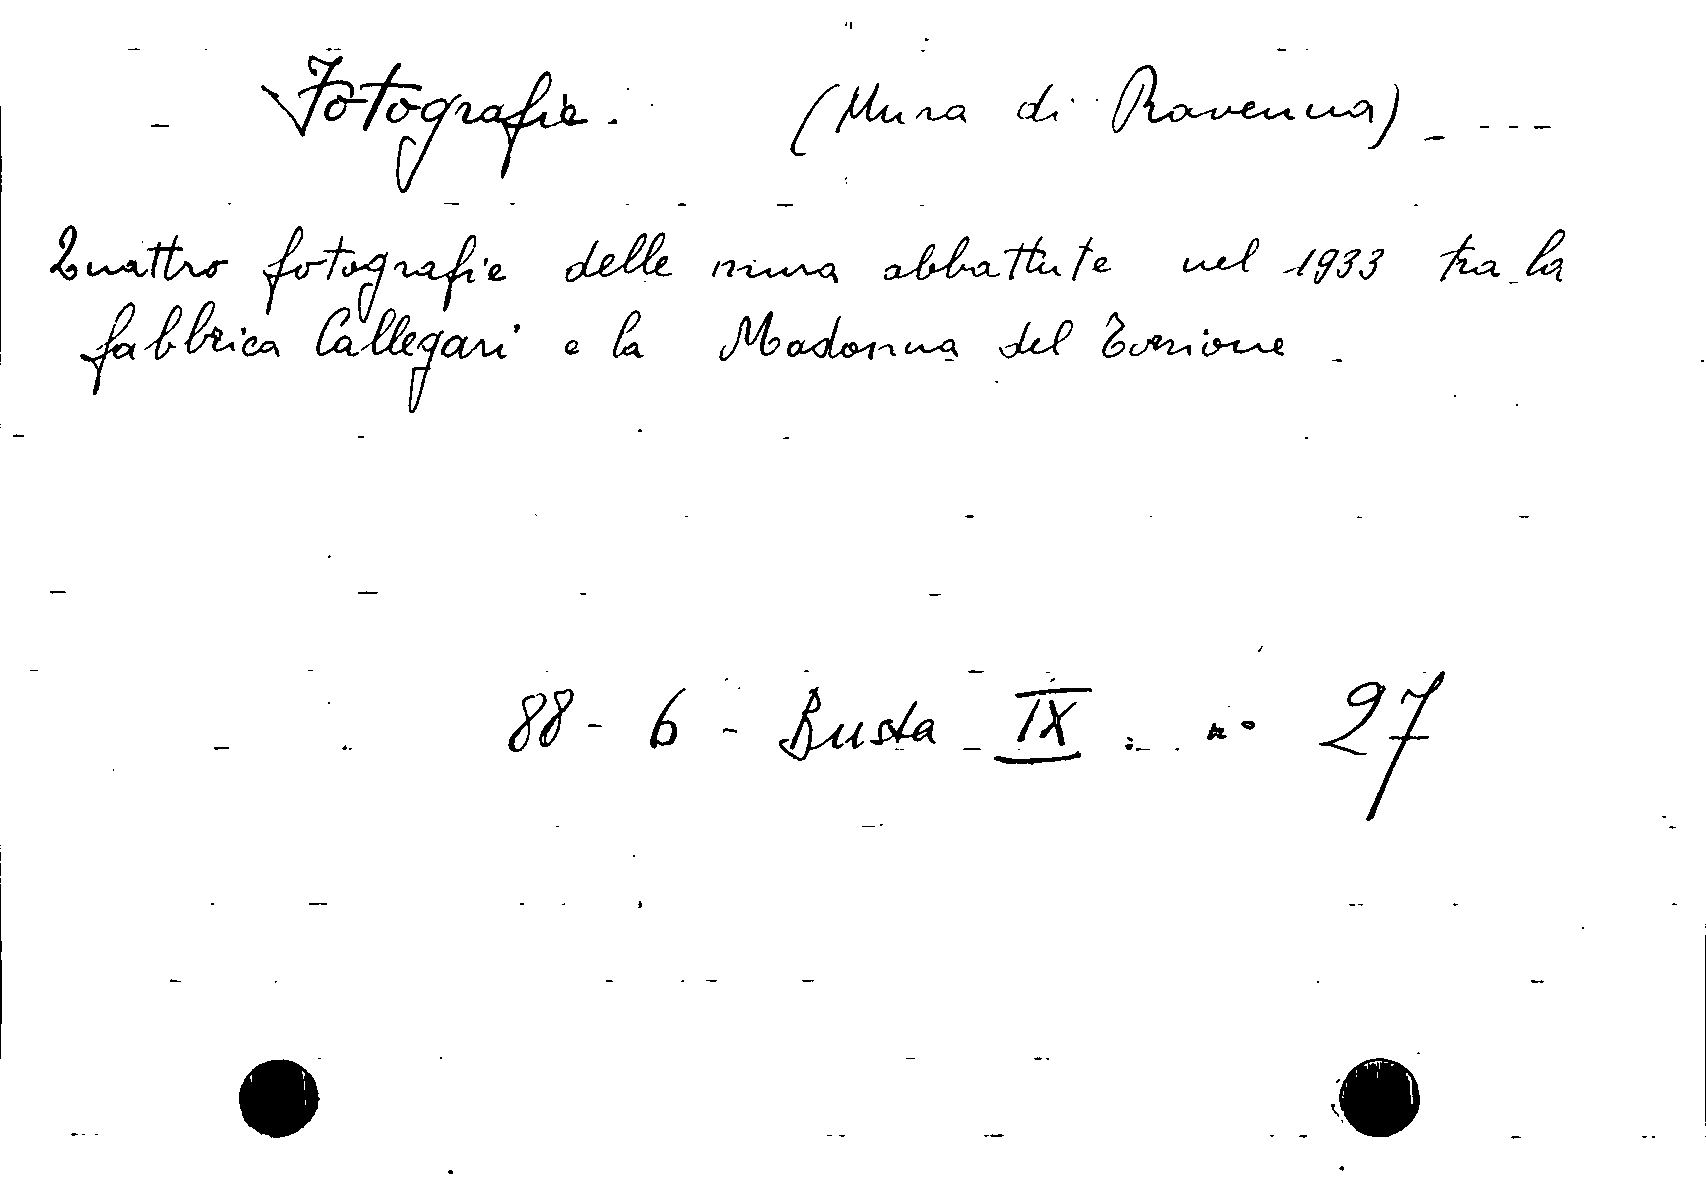 Fotografie. (Mura di Ravenna)
Quattro fotografie delle mura abbattute nel 1933 tra la
fabbrica Callegari e la Madonna del Torrione
88-6- Busta IX n° 27